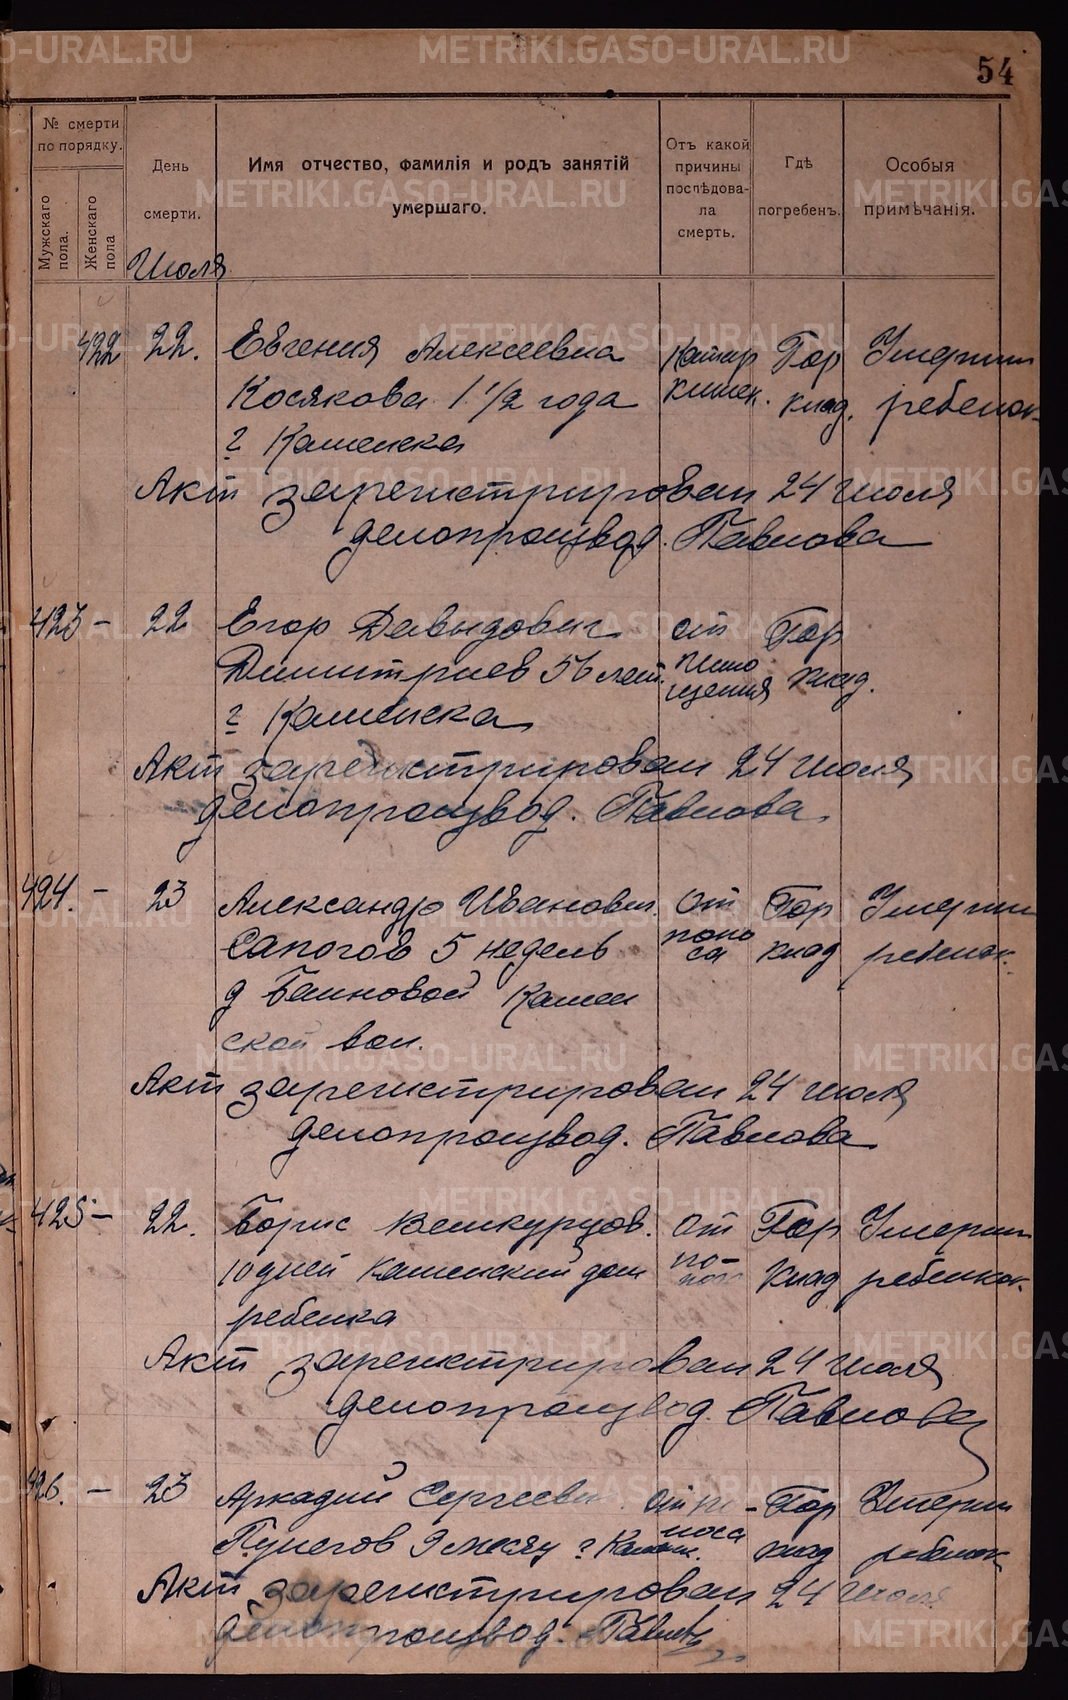 54
№ смерти по порядку.
Мужскаго пола.
Женскаго пола
День смерти.
Имя отчество, фамилія и родъ занятій умершаго.
Отъ какой причины послѣдовала смерть.
Гдѣ погребенъ.
Особыя примѣчанія.
Июля
422 22. Евгения Алексеевна Катар Гор Умерший
Косякова 1 1/2 года кишек. клад. ребенок
г Каменска
Акт зарегистрирован 24 июля
делопроизвод. Павлова
423 – 22 Егор Давыдович от Гор
Димитриев 56 лет. клад.
г Каменска
Акт зарегистрирован 24 июля
делопроизвод. Павлова
424. – 23 Александр Иванович От Гор Умерший
Сапогов 5 недель поноса клад ребенок
д Баиновой Камен
ской вол.
Акт зарегистрирован 24 июля
делопроизвод. Павлова
425 – 22. Борис от Гор Умерший
10 дней Каменский дом клад ребенок
ребенка
Акт зарегистрирован 24 июля
делопроизвод. Павлова
426. – 23 Аркадий Сергеевич От по- Гор Умерший
9 месяц г Камен. носа клад ребенок
Акт зарегистрирован 24 июля
делопроизвод. Павлова
METRIKI.GASO-URAL.RU